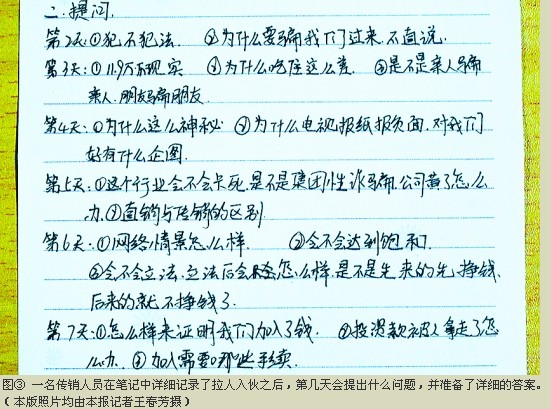 二.提问.
第2天:①犯不犯法. ②为什么要骗我们过来.不直说.
第3天:①11.9万不现实 ②为什么吃住这么差. ③是不是亲人骗
亲人.朋友骗朋友.
第4天:①为什么这么神秘 ②为什么电视报纸报负面.对我们
好有什么企图.
第5天:①这个行业会不会卡死.是不是集团性诈骗.公司黄了怎么
办.②直销与传销的区别
第6天:①网络情景怎么样. ②会不会达到饱和.
③会不会立法.立法后会怎么样.是不是先来的先挣钱.
后来的就不挣钱了.
第7天:①怎么样来证明我们加入了钱. ②投资款被人拿走了怎
么办. ③加入需要哪些手续.
图③ 一名传销人员在笔记中详细记录了拉人入伙之后，第几天会提出什么问题，并准备了详细的答案。
（本版照片均由本报记者王春芳摄）